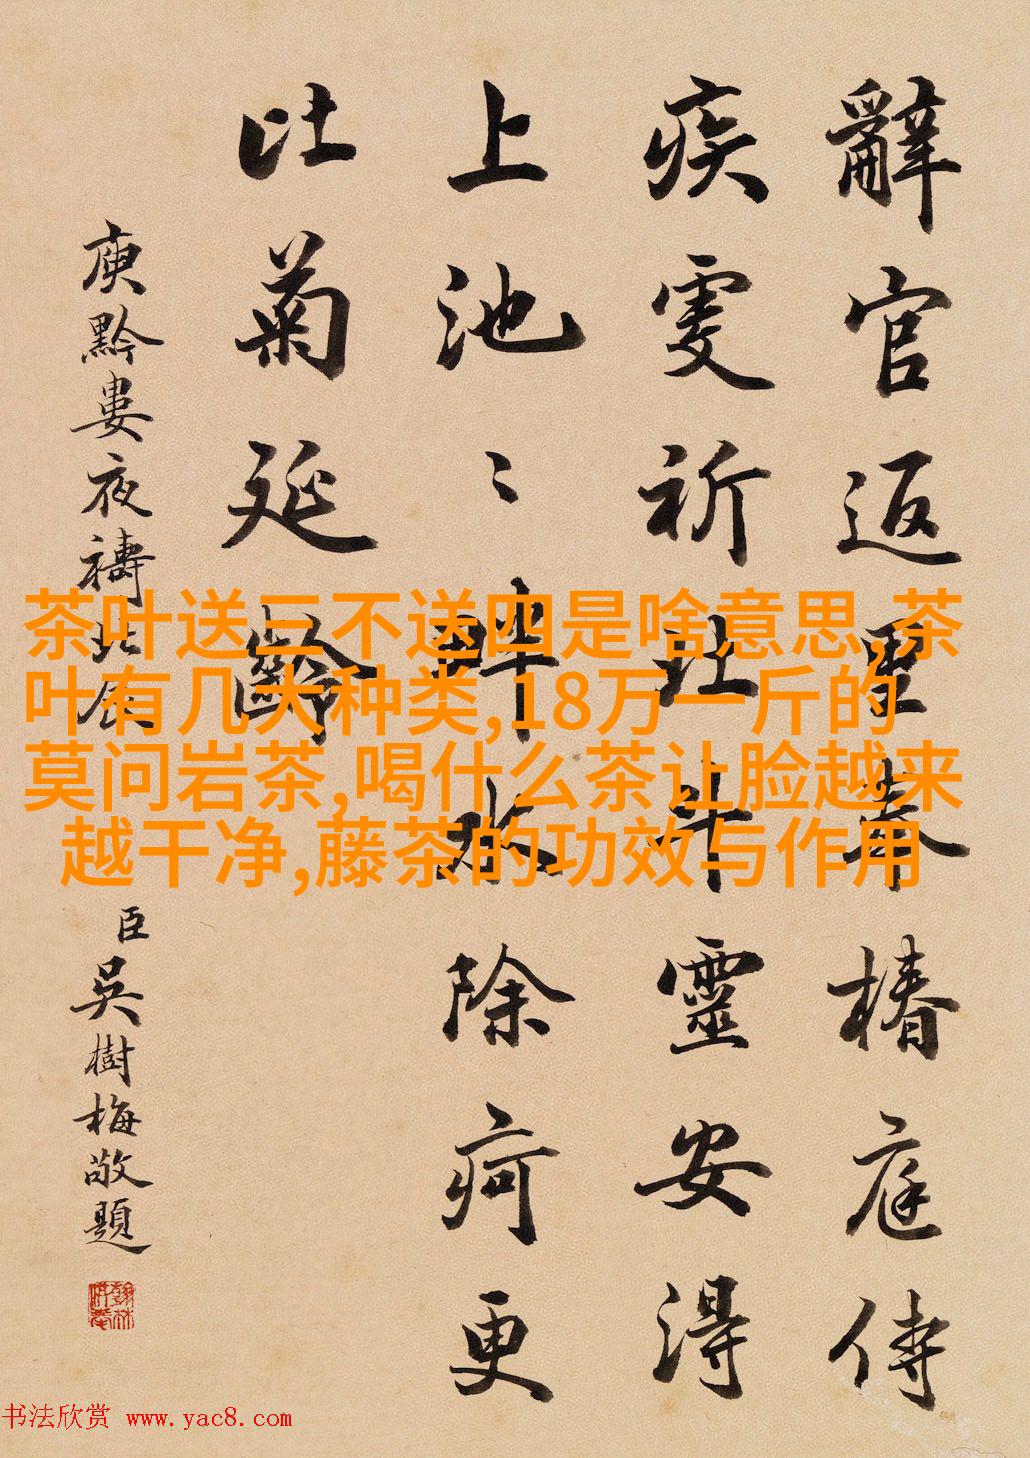 辭官返里奉椿庭侍
疾虔祈北斗靈安得
上池〻畔水除疴更
比菊延齡
庾黔婁夜禱北辰
臣吳樹梅敬題
茶叶送三不送四是啥意思,茶
叶有几大种类,18万一斤的
莫问岩茶,喝什么茶让脸越来
越干净,藤茶的功效与作用
书法欣赏 www.yac8.com